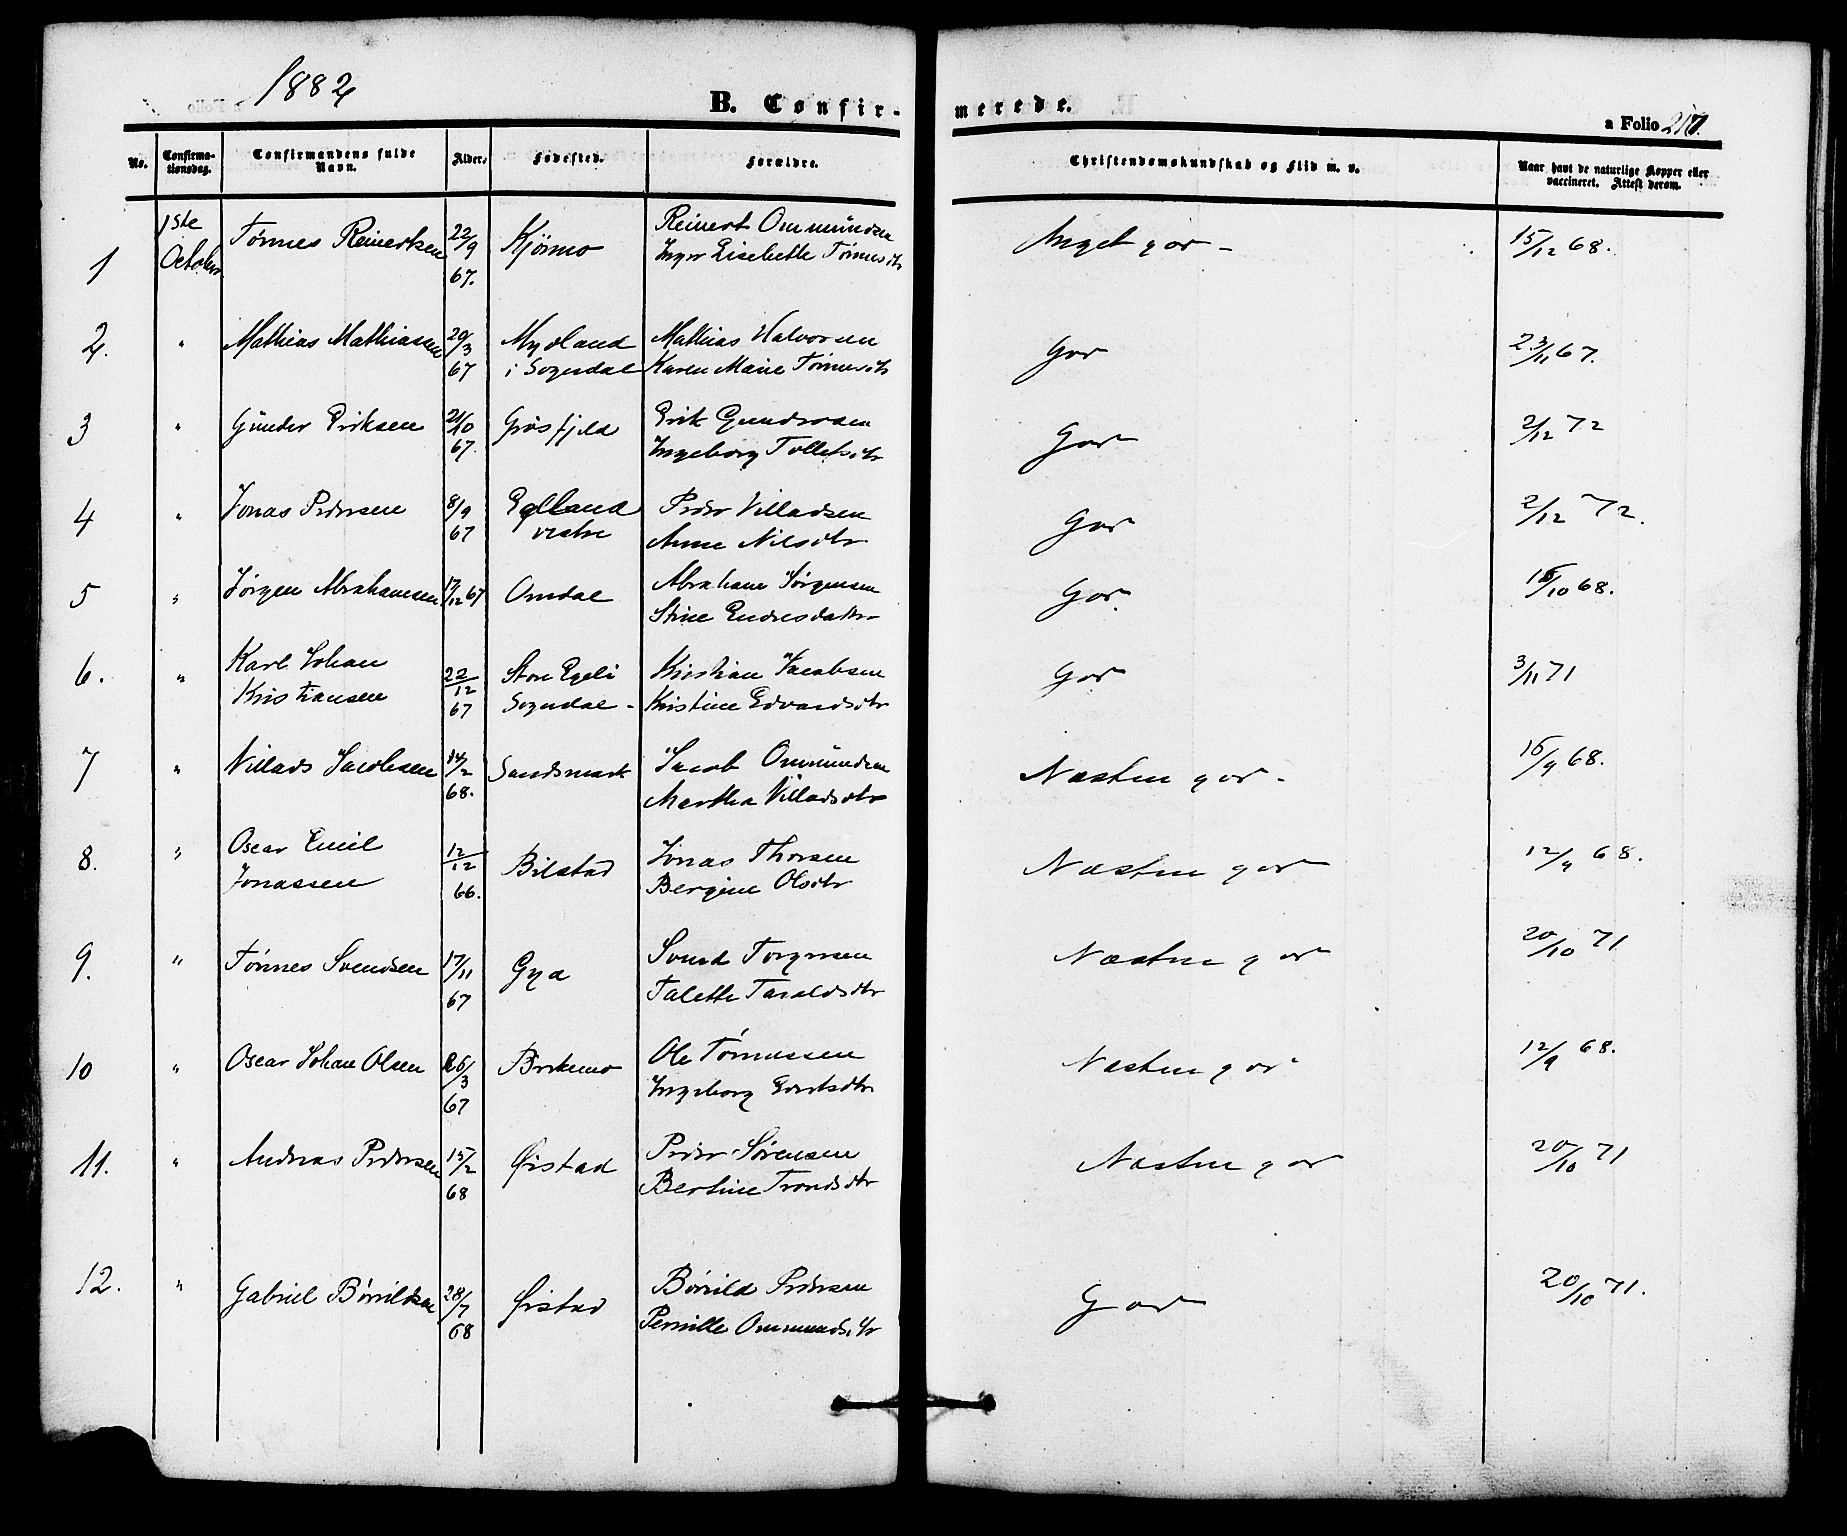 1882
B. Confir-
merede.
a Folio 217.
No. Confirmationsdag. Confirmandens fulde Navn. Alder. Fødested. Forældre. Christendomskundskab og Flid m. v. Naar havt de naturlige Kopper eller vaccineret. Attest derom.
1 1ste October Tønnes Reinertsen 22/9 67. Kjørmo Reinert Ommundsen Inger Lisebette Tønnesdtr Meget god - 15/12 68.
2. " Mathias Mathiasen 20/3 67 Mydland i Sogndal Mathias Halvorsen Karen Marie Tønnesdtr God 23/11 67.
3 " Günder Eriksen 21/10 67. Grøsfjeld Erik Gundersen Ingeborg Tollefsdtr God 2/12 72
4 " Jonas Pedersen 8/9 67 Eglland vestre Peder Villadsen Anne Nilsdtr God 2/12 72.
5 " Jørgen Abrahamsen 17/12 67 Omdal Abraham Jørgensen Stine Endresdatter God. /10 68.
6. " Karl Johan Kristiansen 22/12 67 Store Egeli Sogndal - Kristian Jacobsen Kristine Edvardsdtr God 3/11 71
7 " Villads Jacobsen 14/2 68. Sandsmark Jacob Ommundsen Martha Villadsdtr Næsten god - 15/9 68.
8. " Oscar Emil Jonassen 12/12 66. Bilstad Jonas Thorsen Bergine Olsdtr Næsten god 12/9 68.
9. " Tønnes Svendsen 17/11 67 Gya Svend Torgersen Talette Taraldsdtr Næsten god 20/10 71
10 " Oscar Johan Olsen 26/3 67 Birkemo Ole Tønnessen Ingeborg Evertsdtr Næsten god 12/9 68.
11. " Andreas Pedersen 15/2 68 Ørstad Peder Sørensen Bertine Trondsdtr Næsten god 20/10 71
12. " Gabriel Børrildsen 28/7 68 Ørstad Børrild Pedersen Pernille Ommundsdtr God 20/10 71.